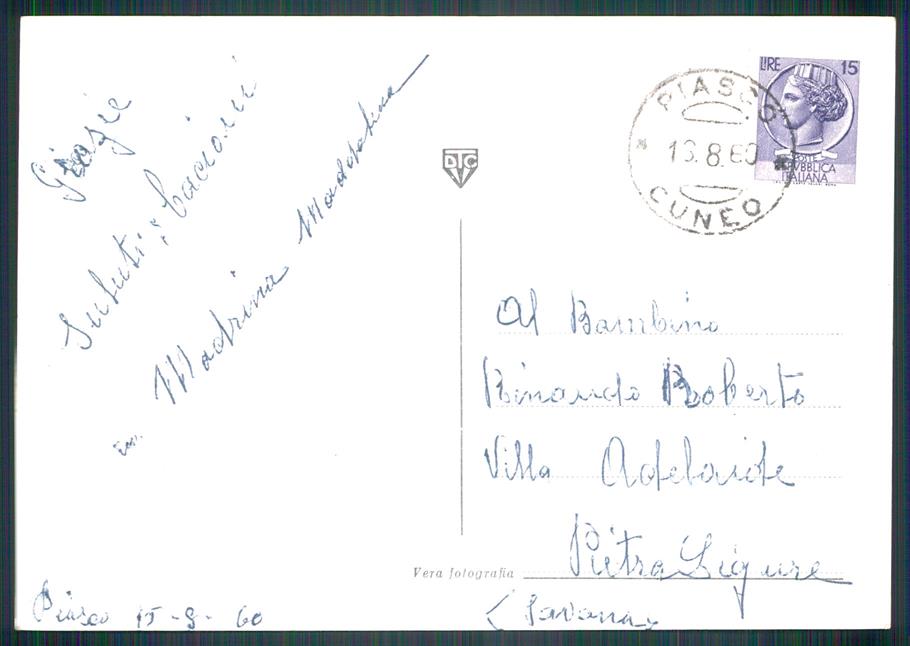 Grazie
Saluti e bacioni
Madrina Maddalena
Piasco 15-8-60
DTC
Vera fotografia
PIASCO
16.8.60
CUNEO
LIRE 15
POSTE
REPVBBLICA
ITALIANA
Al Bambino
Rinaudo Roberto
Villa Adelaide
Pietra Ligure
(Savona)